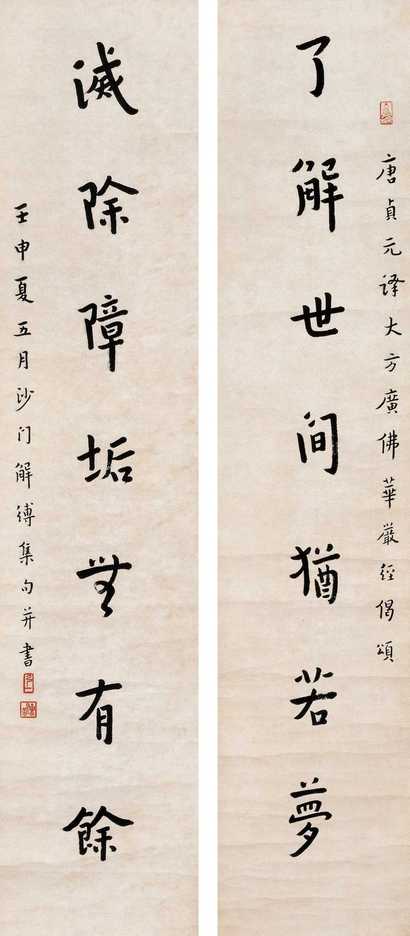 唐貞元譯大方廣佛華嚴經偈頌
了解世间猶若夢
滅除障垢無有餘
壬申夏五月沙门解縛集句并書